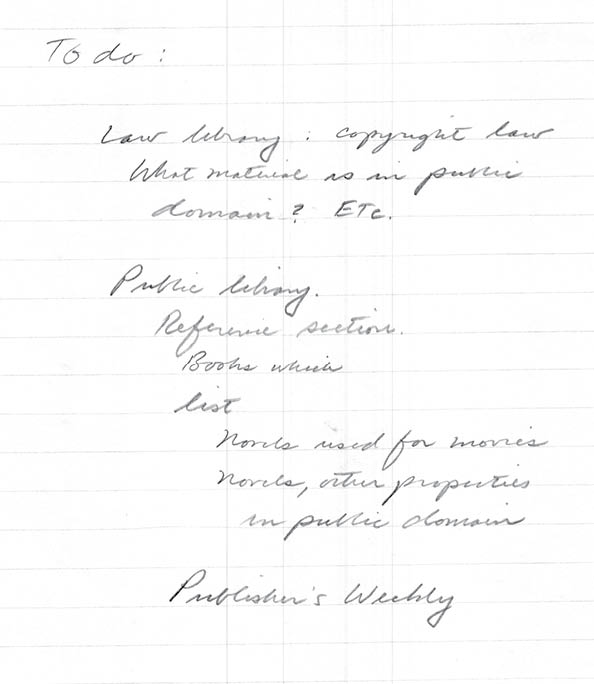 To do :
Law library : copyright law
What material is in public
domain ? ETC.
Public library.
Reference section.
Books which
list
Novels used for movies
Novels, other properties
in public domain
Publisher's Weekly